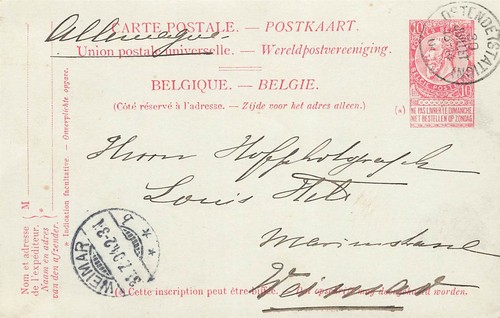 Allemagne
CARTE POSTALE. — POSTKAART.
Union postale universelle. — Wereldpostvereeniging.
BELGIQUE. — BELGIE.
(Côté réservé à l'adresse. — Zijde voor het adres alleen.)
10
10
NE PAS LIVRER LE DIMANCHE
NIET BESTELLEN OP ZONDAG
OSTENDE (STATION)
(*)
Herrn Hofphotograph
Louis Held
Marienstrasse
Weimar
WEIMAR
b
(*) Cette inscription peut être biffée.
M
Nom et adresse
de l'expéditeur.
Naam en adres
van den afzender.
* Indication facultative. — Onverplichte opgave.